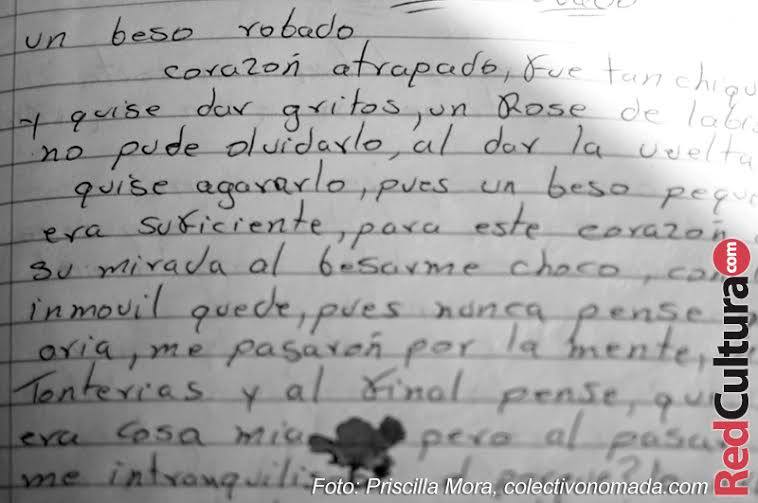 un beso robado
corazoñ atrapado, fue tan chiqu
y quise dar gritos, un Rose de labi
no pude olvidarlo, al dar la vuelta
quise agararlo, pues un beso pequ
era suficiente, para este corazoñ
su mirada al besarme choco, con
inmovil quede, pues nunca pense
oria, me pasaroñ por la mente,
Tonterias y al final pense, qu
era cosa mia pero al pasar
me intranquiliz
Foto: Priscilla Mora, colectivonomada.com
RedCultura.com